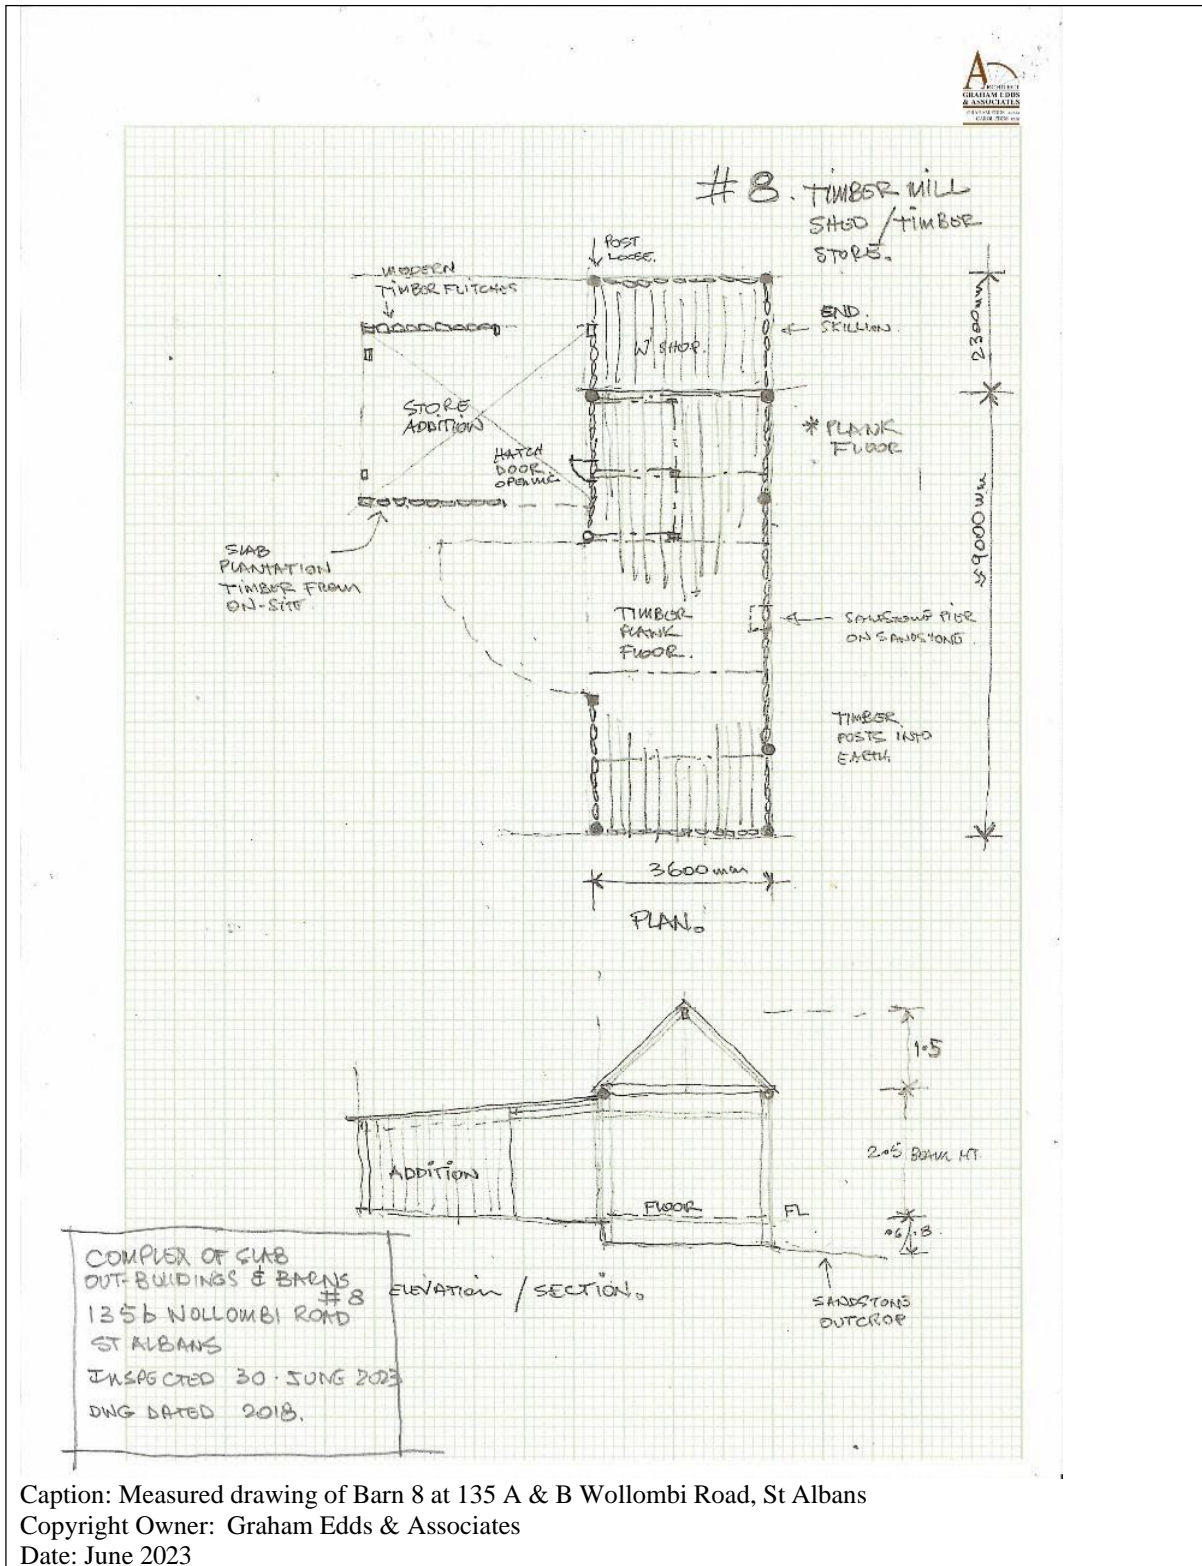 ARCHITECT
GRAHAM EDDS
& ASSOCIATES
CAROL EDDS
#8. TIMBER MILL
SHED / TIMBER
STORE.
POST
LOOSE.
MODERN
TIMBER FLITCHES
END.
SKILLION.
2300mm
W'SHOP.
STORE
ADDITION
* PLANK
FLOOR
HATCH
DOOR
OPENING
≈9000mm
SLAB
PLANTATION
TIMBER FROM
ON-SITE.
TIMBER
PLANK
FLOOR.
SANDSTONE PIER
ON SANDSTONE.
TIMBER
POSTS INTO
EARTH.
3600mm
PLAN.
1.5
2.5 BEAM HT.
ADDITION
FLOOR
FL
.6/.8.
ELEVATION / SECTION.
SANDSTONE
OUTCROP
COMPLEX OF SLAB
OUT-BUILDINGS & BARNS
#8
135b WOLLOMBI ROAD
ST ALBANS
INSPECTED 30 JUNE 2023
DWG DATED 2018.
Caption: Measured drawing of Barn 8 at 135 A & B Wollombi Road, St Albans
Copyright Owner: Graham Edds & Associates
Date: June 2023